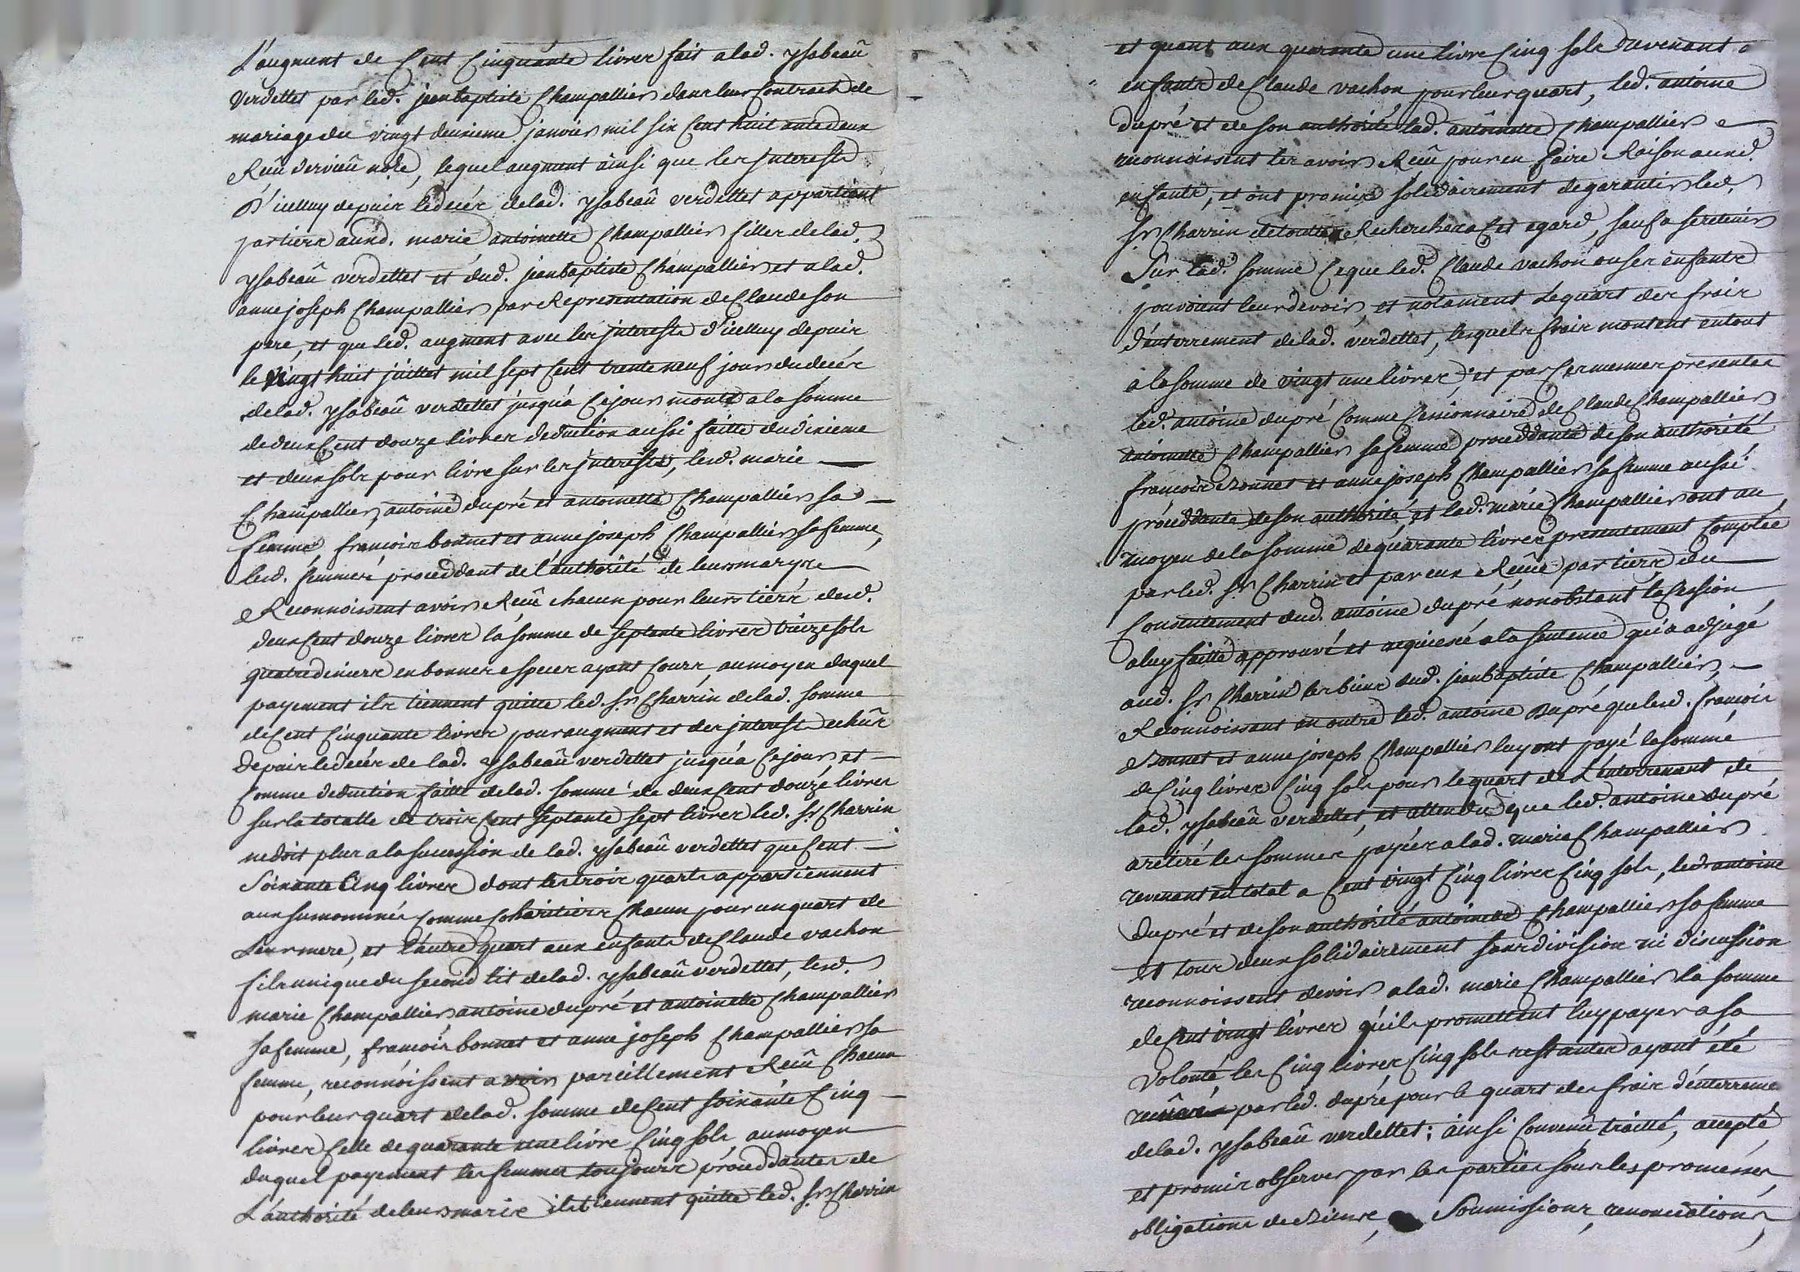 L'augment de Cent Cinquante livres fait a lad. ysabeau
Verdettet par led. jean baptiste Champallier dans leur Contract de
mariage du vingt deuxieme janvier mil six Cent huit ante deux
Reçu notre, lequel augment ainsi que les interests
D'iceluy depuis le decés de lad. ysabeau verdettet appartient
par tiers aux d. marie antoinette Champallier filles de lad.
ysabeau verdettet et dud. jean baptiste Champallier et a lad.
anne joseph Champallier par Representation de Claude son
pere, et que led. augment avec les interests d'iceluy depuis
le vingt huit juillet mil sept Cent trente neuf jour du decés
de lad. ysabeau verdettet jusqu'a Ce jour monte a la somme
de deux Cent douze livres deduction aussi faitte du dixieme
et deux sols pour livre sur les interests, lesd. marie
Champallier, antoine dupré et antoinette Champallier sa
femme, francois bonnet et anne joseph Champallier sa femme,
lesd. femmes procedant de l'authorité de leurs marys
Reconnoissent avoir Reçu chacun pour leur tiers desd.
deux Cent douze livres la somme de septante livres treize sols
quatre deniers en bonnes especes ayant Cours, au moyen duquel
payement ils tiennent quitte led. Sr Charrin de lad. somme
de Cent Cinquante livres pour augment et des interests echûs
depuis le decés de lad. ysabeau verdettet jusqu'a Ce jour, et
Comme deduction faitte de lad. somme de deux Cent douze livres
sur la totalle de trois Cent septante sept livres led. Sr Charrin
ne doit plus a la succession de lad. ysabeau verdettet que Cent
Soixante Cinq livres dont les trois quarts appartiennent
aux surnommés Comme Cohéritiers Chacun pour un quart de
Leur mere, et l'autre quart aux enfants de Claude vachon
fils unique du second lit de lad. ysabeau verdettet, lesd.
marie Champallier antoine dupré et antoinette Champallier
sa femme, francois bonnet et anne joseph Champallier sa
femme, reconnoissent avoir pareillement Reçu Chacun
pour leur quart de lad. somme de Cent soixante Cinq
livres Celle de quarante une livre Cinq sols, au moyen
duquel payement les femmes toujours procedantes de
L'authorité de leurs maris ils tiennent quitte led. Sr Charrin
et quant aux quarante une livre Cinq sols revenant a
enfants de Claude vachon pour leur quart, led. antoine
dupré et de son authorité lad. antoinette Champallier
reconnoissent les avoir Reçu pour en faire Raison aux d.
enfants, et ont promis solidairement de garantir led.
Sr Charrin de toutes Recherches a Cet egard, sauf a se retenir
Sur lad. somme Ce que led. Claude vachon ou ses enfants
pouvoient leur devoir, et notament Le quart des frais
d'enterrement de lad. verdettet, lesquels frais montent en tout
a la somme de vingt une livres et par Ces mesmes presentes
led. antoine dupré Comme Cessionnaire de Claude Champallier
antoinette Champallier sa femme procedante de son authorité
francois Bonnet et anne joseph Champallier sa femme aussi
procedante de son authorité, et lad. marie Champallier ont au
moyen de la somme de quarante livres presentement Comptée
par led. Sr Charrin et par eux Reçue par tiers du
Consentement dud. antoine dupré nonobstant la Cession
a luy faitte approuvé et acquiescé a la sentence qui a adjugé
aud. Sr Charrin les biens dud. jean baptiste Champallier,
Reconnoissant en outre led. antoine Dupré que lesd. francois
Bonnet et anne joseph Champallier luy ont payé la somme
de Cinq livres Cinq sols pour le quart de L'enterrement de
lad. ysabeau verdettet, et attendu que led. antoine dupré
a retiré les sommes payées a lad. marie Champallier
revenant en total a Cent vingt Cinq livres Cinq sols, led. antoine
dupré et de son authorité antoinette Champallier sa femme
et tous deux solidairement sans division ni discussion
reconnoissent devoir a lad. marie Champallier la somme
de Cent vingt livres qu'ils promettent luy payer a sa
Volonté les Cinq livres Cinq sols restantes ayant été
par led. dupré pour le quart des frais d'enterreme
de lad. ysabeau verdettet; ainsi Convenu traitté, accepté,
et promis observer par les parties sous les promesses,
obligations de Biens, Soumissions, renonciations,